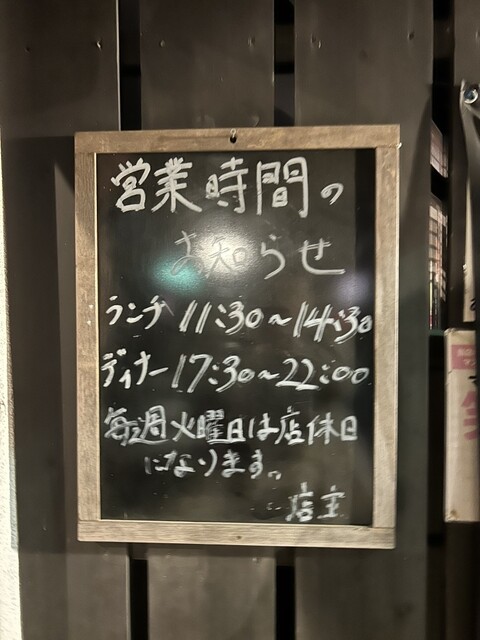 営業時間の
お知らせ
ランチ 11:30~14:30
ディナー 17:30~22:00
毎週火曜日は店休日
になります。
店主